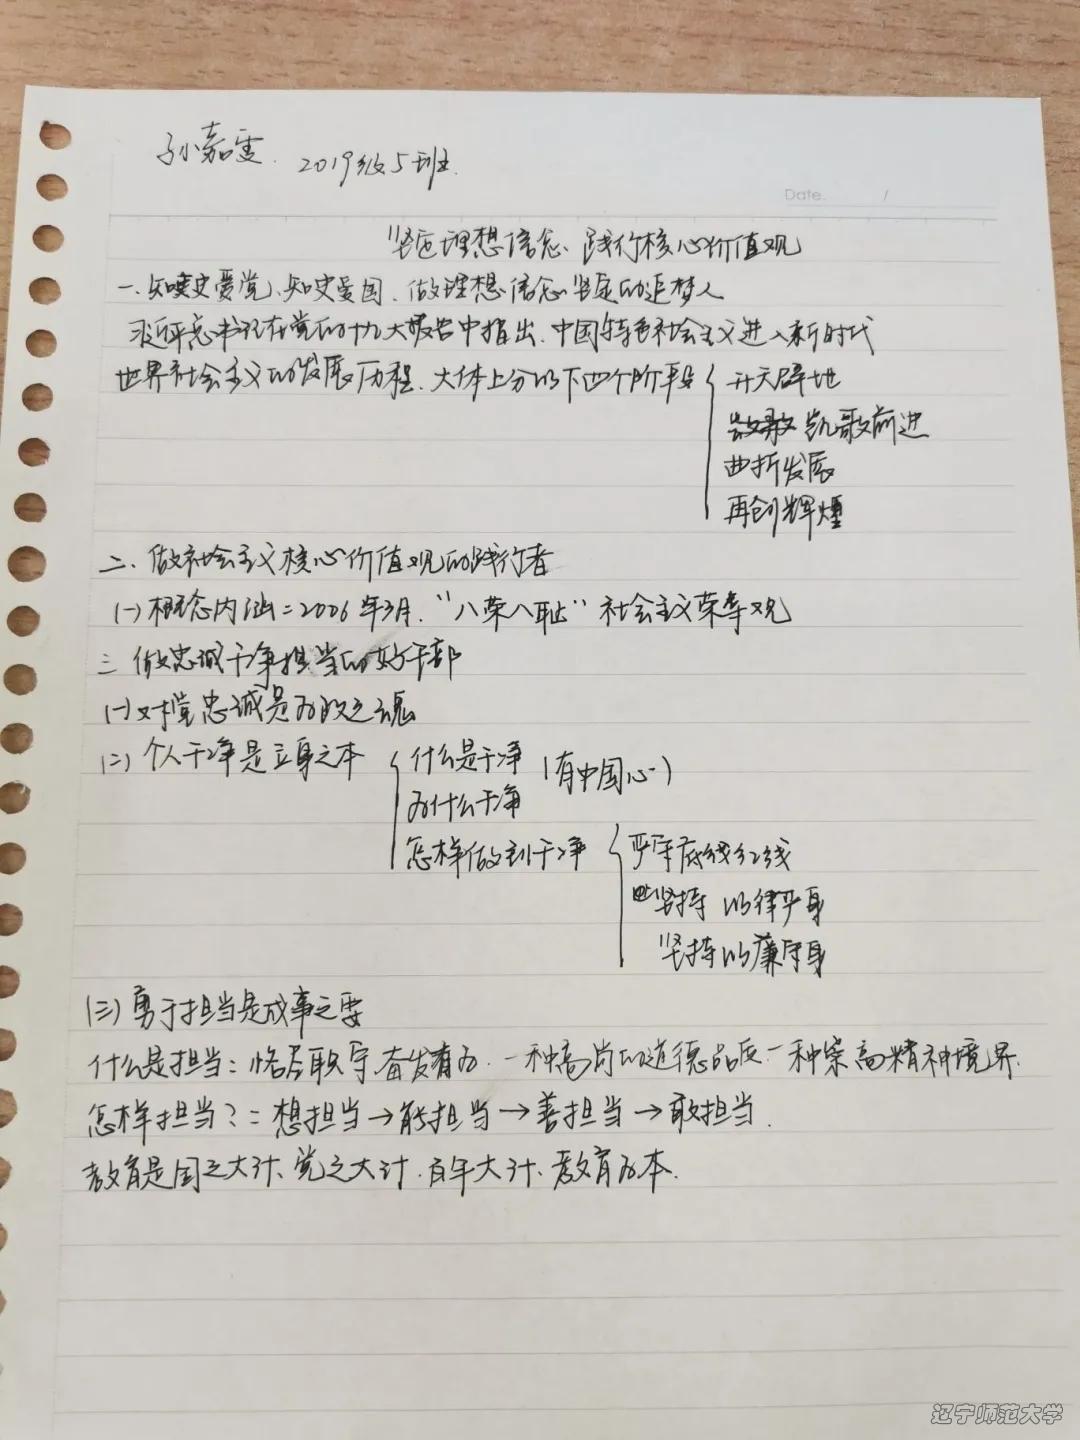 孙嘉雯. 2019级5班.
Date. /
坚定理想信念、践行核心价值观
一、知史爱党、知史爱国、做理想信念坚定的追梦人
习近平总书记在党的十九大报告中指出、中国特色社会主义进入新时代
世界社会主义的发展历程、大体上分以下四个阶段 开天辟地
凯歌前进
曲折发展
再创辉煌
二、做社会主义核心价值观的践行者
(一)概念内涵=2006年3月."八荣八耻"社会主义荣辱观
三 做忠诚干净担当的好干部
(一)对党忠诚是为政之魂
(二)个人干净是立身之本 什么是干净 (有中国心)
为什么干净
怎样做到干净 严守底线红线
坚持以律严身
坚持以廉守身
(三)勇于担当是成事之要
什么是担当:恪尽职守,奋发有为.一种高尚的道德品质.一种崇高精神境界.
怎样担当?=想担当→能担当→善担当→敢担当.
教育是国之大计、党之大计.百年大计、教育为本.
辽宁师范大学